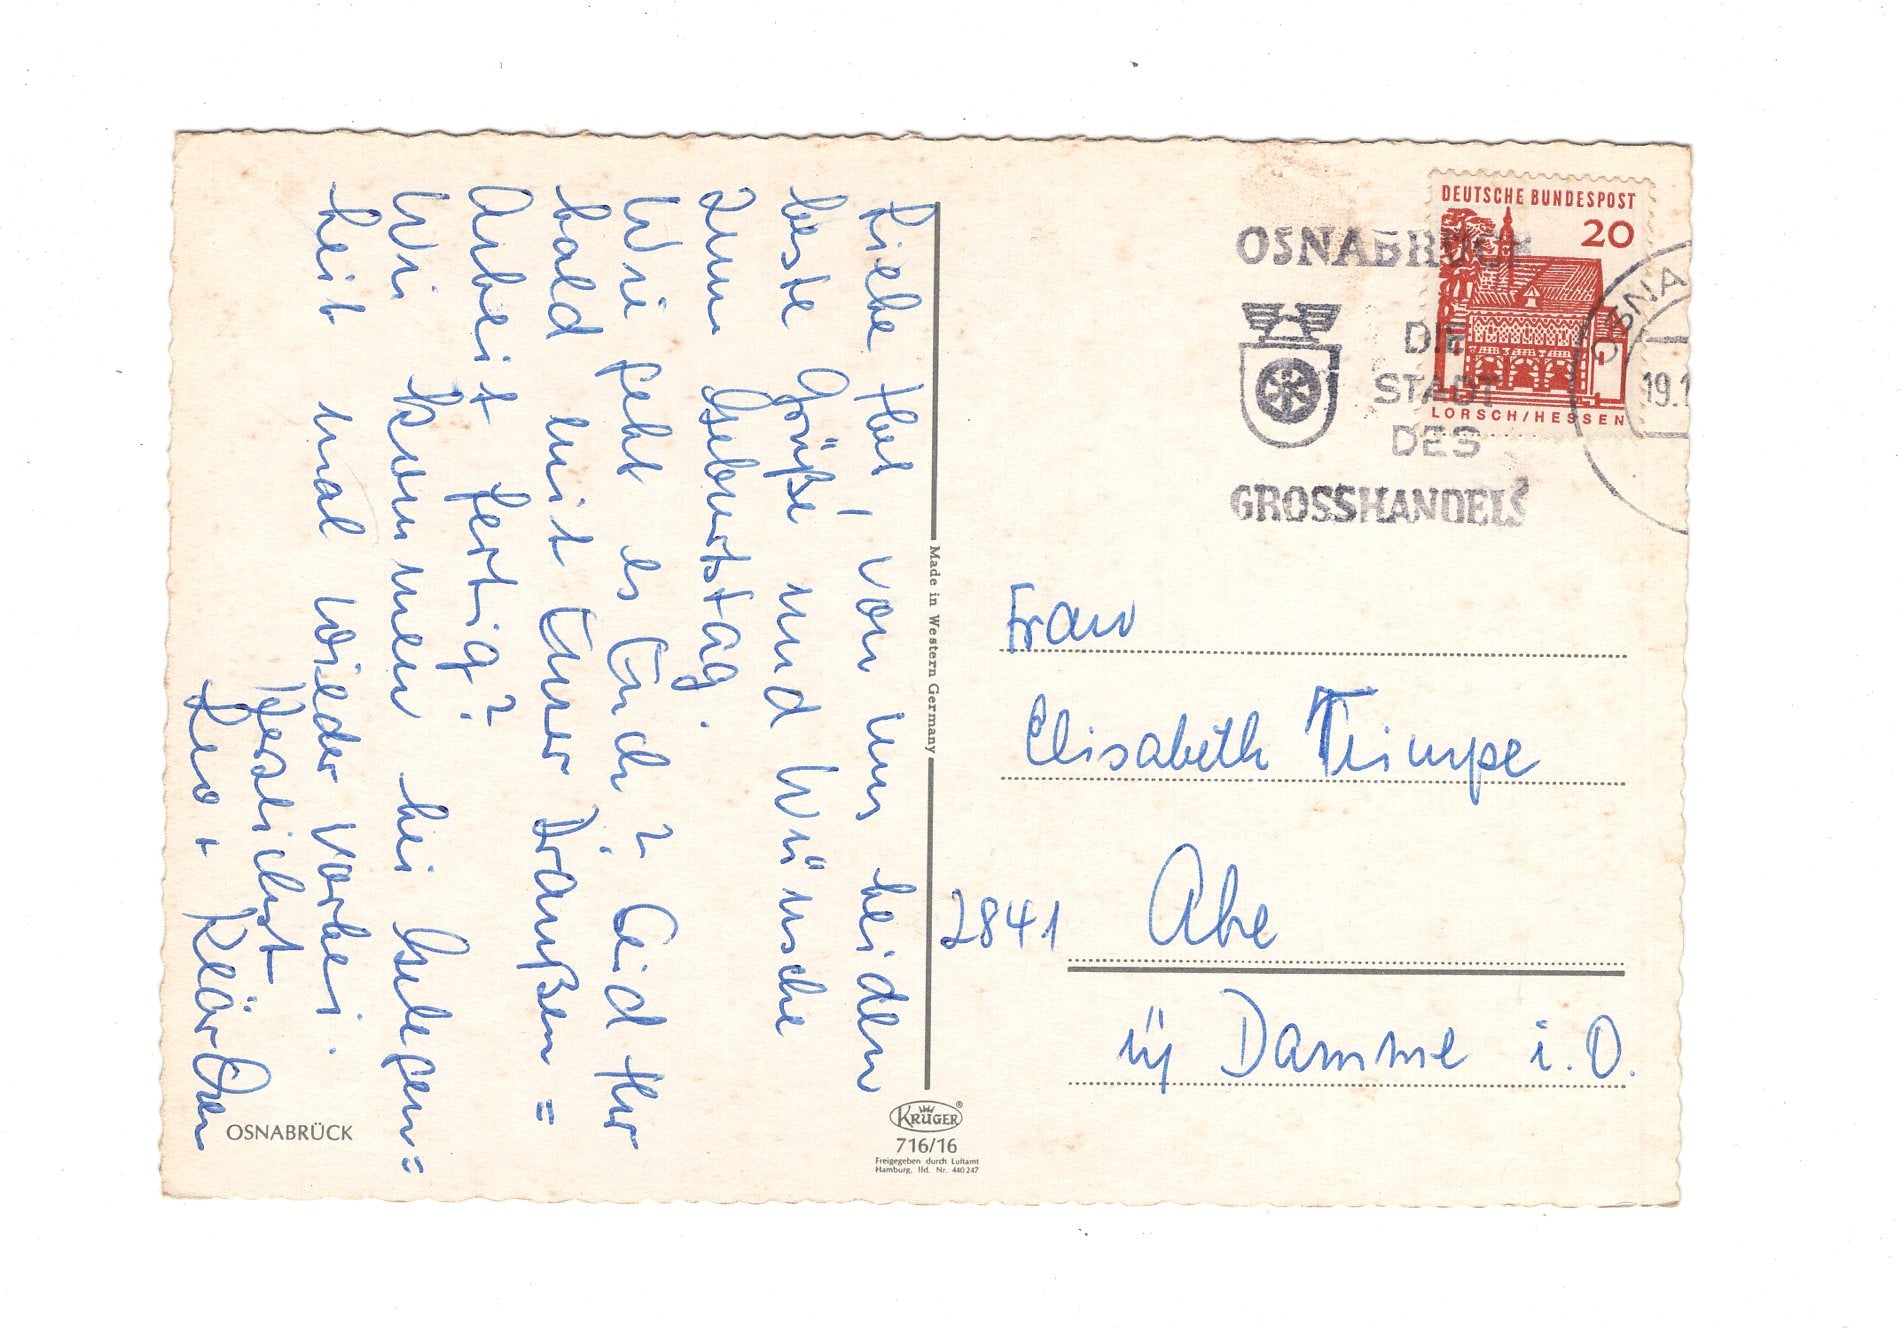 Liebe von uns beiden
beste Grüße und Wünsche
zum Geburtstag.
Wie geht es Euch? Seid Ihr
bald mit Eurer Draußen=
Arbeit fertig?
Wir kommen bei Gelegen=
heit mal wieder vorbei.
Herzlichst
Leo + Klärchen
OSNABRÜCK
Made in Western Germany
KRÜGER®
716/16
Freigegeben durch Luftamt
Hamburg, lfd. Nr. 440 247
DEUTSCHE BUNDESPOST
20
LORSCH/HESSEN
OSNABRÜCK
DIE
STADT
DES
GROSSHANDELS
OSNA
19.1
Frau
Elisabeth Trimpe
2841 Ahe
üb Damme i.O.